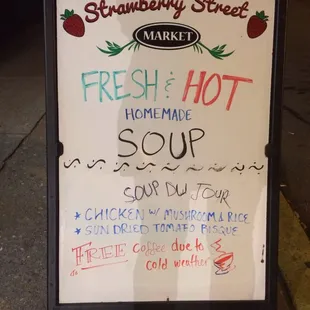 Strawberry Street
MARKET
FRESH & HOT
HOMEMADE
SOUP
SOUP DU JOUR
* CHICKEN W/ MUSHROOM & RICE
* SUN DRIED TOMATO BISQUE
FREE Coffee due to
cold weather